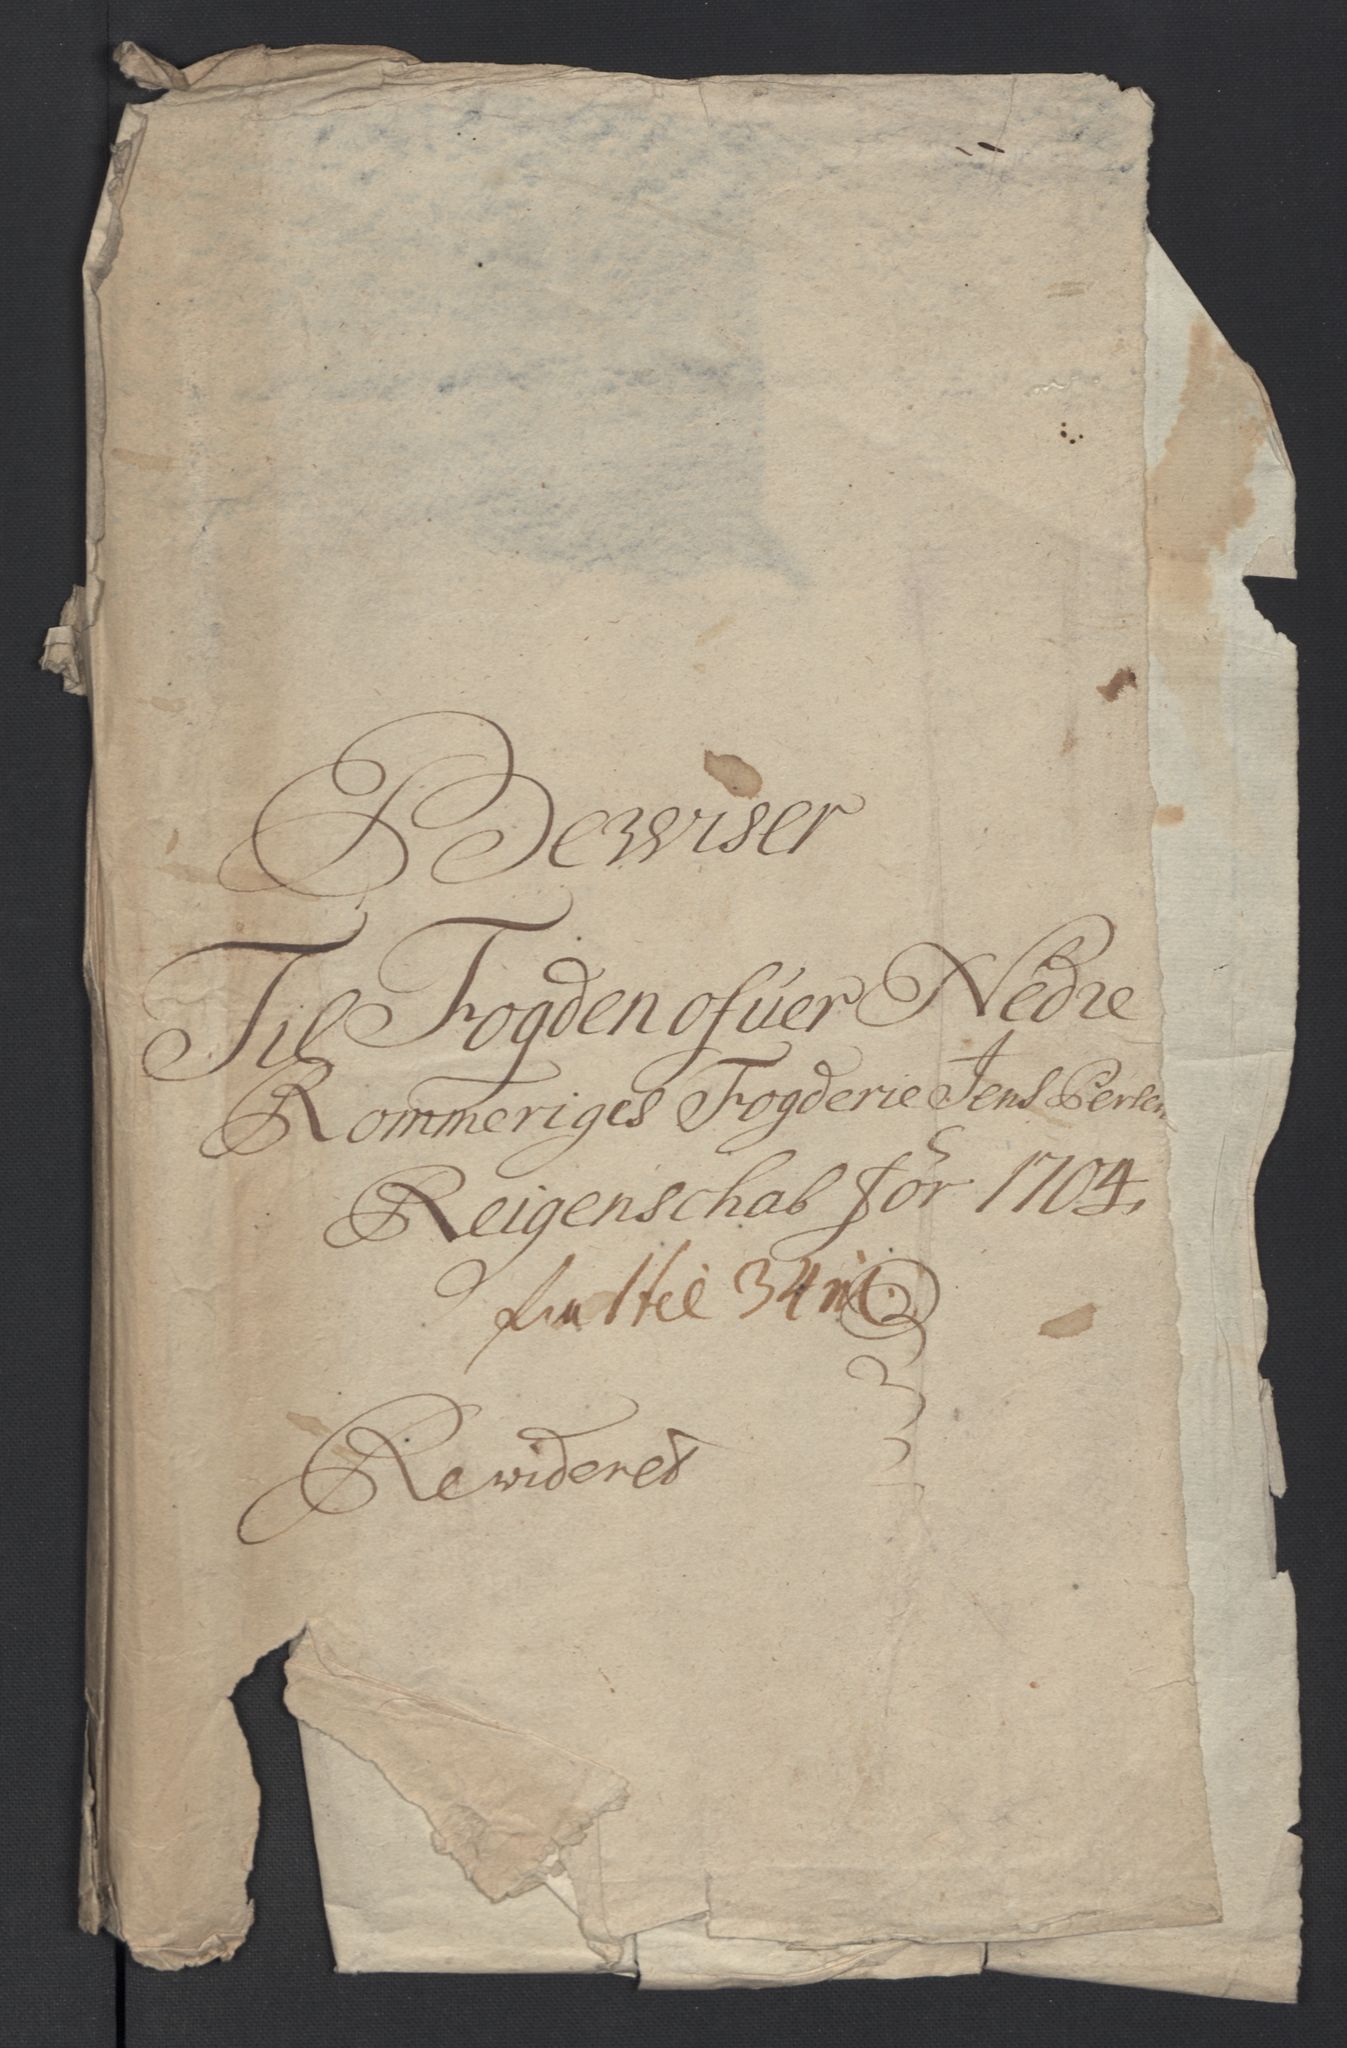 Bewiser
Til Fogden ofuer Nedre
Rommeriges Fogderie Jens Persen
Reigenschab for 1704,
fra 1 til 34
Rewideret